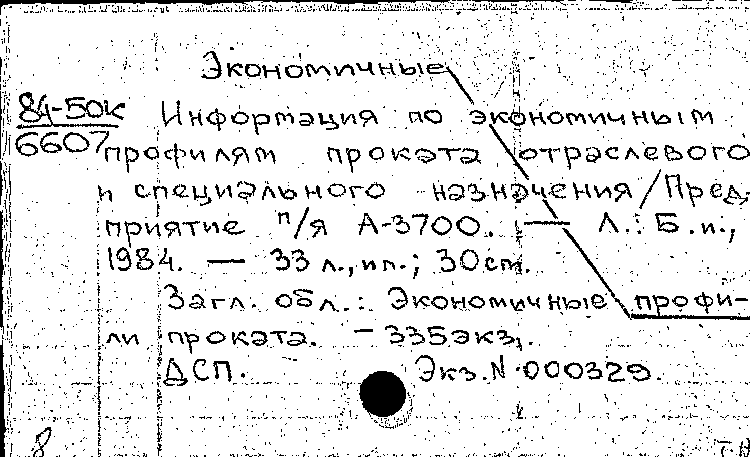 Экономичные
84-50к Информация по экономичным
6607 профилям проката отраслевого
и специального назначения/Пред-
приятие п/я А-3700. — Л.: Б.и.,
1984. — 33 л., ил.; 30 см.
Загл. обл.: Экономичные профи-
ли проката. — 335 экз.
ДСП. Экз. N 000329.
8